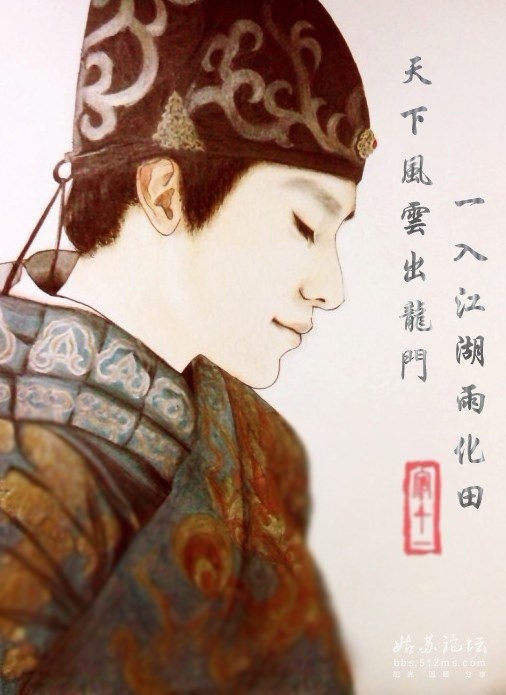 天下風雲出龍門
一入江湖雨化田
姑苏论坛
bbs.512ms.com